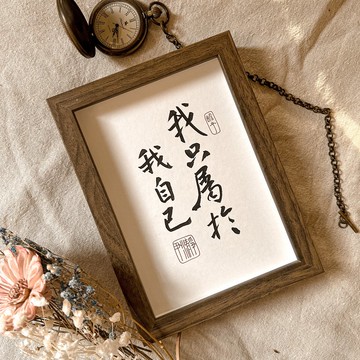 我只屬於
我自己